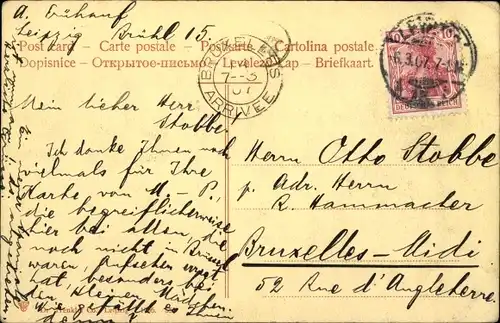 A. Frühauf
Leipzig Brühl 15.
Post card — Carte postale — Postkarte — Cartolina postale
Dopisnice — Открытое письмо — Levelező-Lap — Briefkaart.
BRUXELLES
7–3
07
ARRIVEE
LEIPZIG
6.3.07.7-
10 10
DEUTSCHES REICH
Mein lieber Herr
Stobbe
Ich danke Ihnen noch
vielmals für Ihre
Karte von M.-P.,
die begreiflicherweise
hier bei allen, die
noch nicht in Brüssel
waren, Aufsehen erregt
hat, besonders bei
den kleinen Mädchen.
Wie gefällt es Ihnen
denn
Herrn Otto Stobbe
p. Adr. Herrn
R. Hammacher
Bruxelles-Midi
52 Rue d'Angleterre